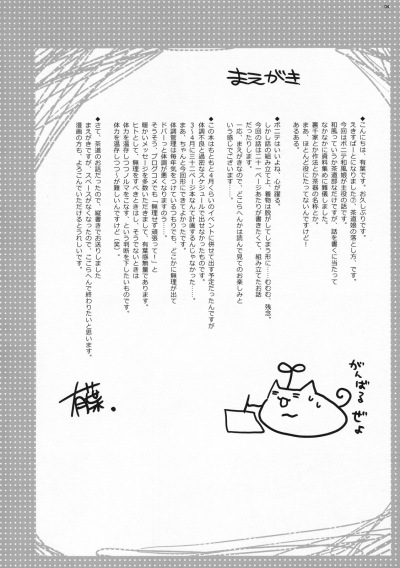 04
まえがき
◆こんにちは、有葉です。お久しぶりです。
えきすぱーとになりました⑦、茶道娘の落とし方、です。
今回はポニテ和風娘が主役の話です。
和風っていうか茶道部なだけですが、話を書くに当たって
なかなかに資料集め難儀しました。
裏千家とか作法とか茶器の名称とか。
まあ、ほとんど役にたってないんですけど！
あるある。
◆ポニテはいいよね、心が躍る。
しかし話の組み立て上、着物は脱がしてしまう形に……むむむ、残念。
今回の話は二十一ページあたりが書きたくて、組み立てたお話
だったりします。
一応まえがきなので、どこらへんかは読んで見てのお楽しみと
いう感じでございます……。
◆この本はもともと4月くらいのイベントに併せて出す予定だったんですが
体調不良と過密なスケジュールで出せなかったものです。
まあ、ちゃんと今回形にできてよかったです。
3～4月に三十二ページ本なんて計画するんじゃなかった……。
体調管理は毎年気をつけているつもりでも、どこかに無理が出て
ドバーっと体調が悪くなりますの。
そうそう、ブログ等で「無理せず頑張って〜！」と
暖かいメッセージを多数いただきまして、有葉感無量であります。
ヒトとして、無理をすべきときはし、そうでないときは
体力を温存しつつノルマをこなす、という判断を下したいものです。
体力を温存しつつ、ってーのが難しいんですけど（笑）
◆さて、茶道のお話だったので、縦書きでお送りしました
まえがきですが、スペースがなくなったので、ここらへんで終わりたいと思います。
漫画の方も、よろこんでいただけるとうれしいです。
がんばるぜよ
有葉。